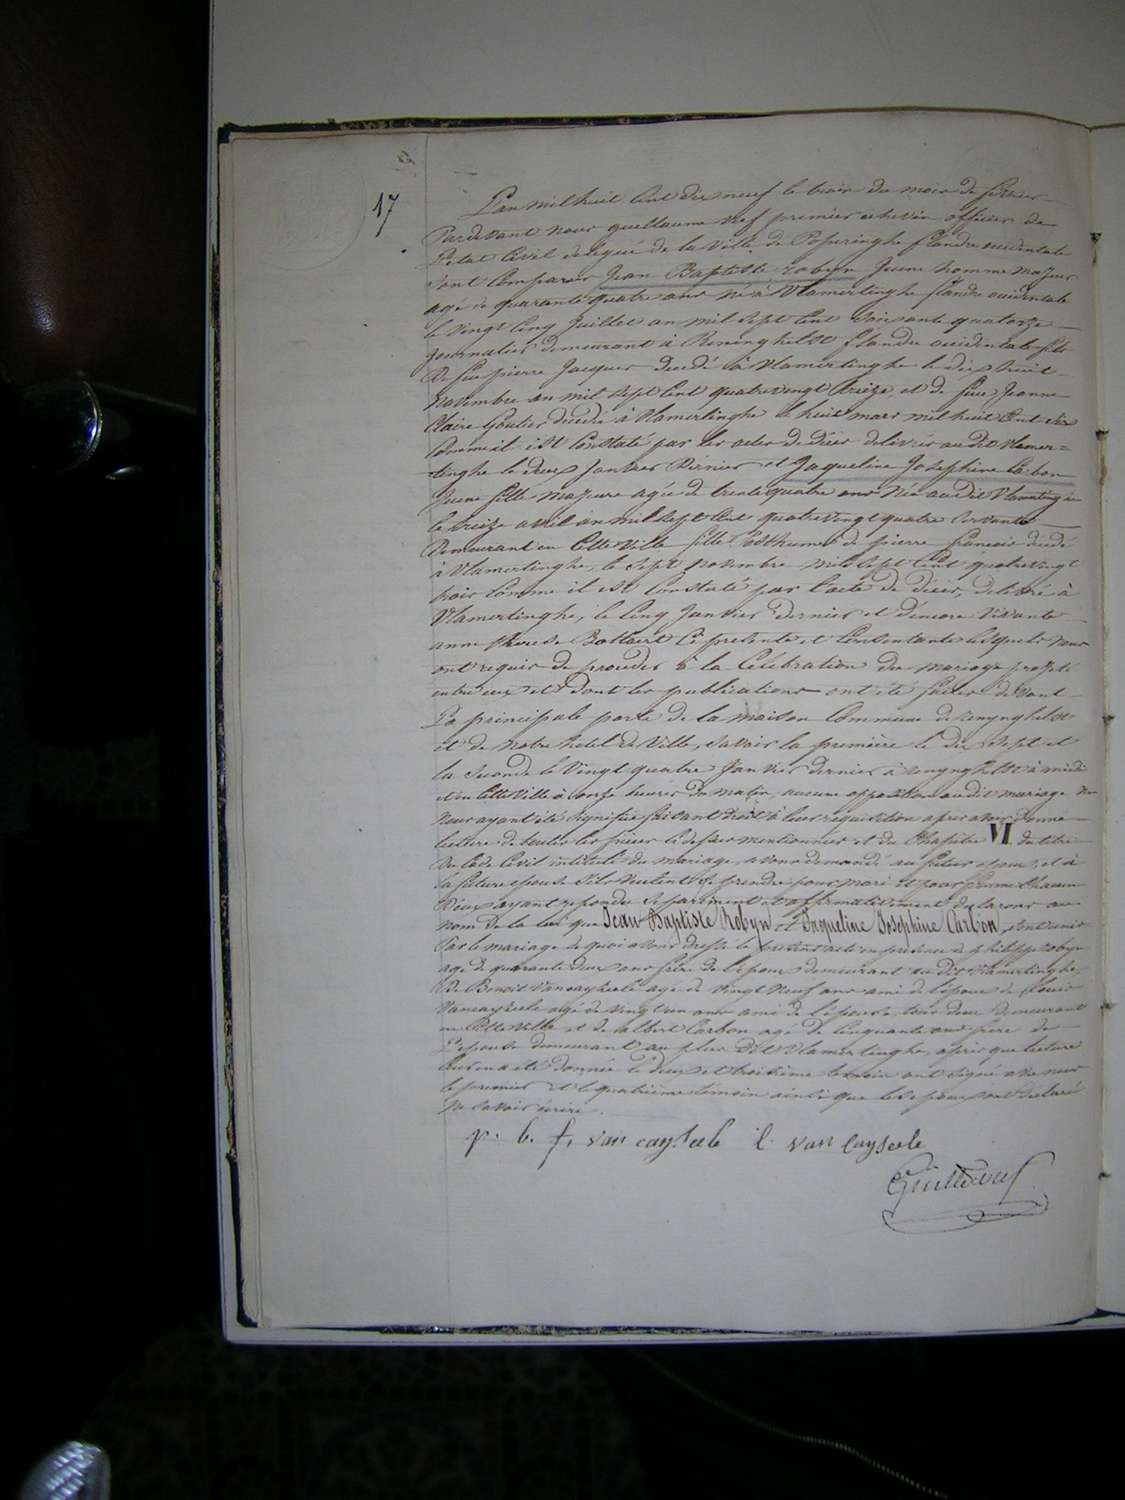 17
L'an mil huit Cent dix neuf le trois du mois de fevrier
Pardevant nous guillaume premier echevin officier de
l'etat Civil delegué de la Ville de Poperinghe flandre occidentale
sont Comparus Jean Baptiste robyn Jeune homme majeur
agé de quarante quatre ans né à Vlamertinghe flandre occidentale
le vingt Cinq Juillet an mil sept Cent soixante quatorze
Journalier demeurant à Reninghelst flandre occidentale fils
de feu pierre Jacques decedé à Vlamertinghe le dix huit
Novembre an mil sept Cent quatrevingt treize, et de feue Jeanne
Claire decedée à Vlamertinghe le huit mars mil huit Cent dix
Comme il est Constaté par les actes de décès delivrés au dit Vlamer=
tinghe le deux Janvier dernier et Jaqueline Josephine Carbon
Jeune fille majeure agée de trente quatre ans Née au dit Vlamertinghe
le treize avril an mil sept Cent quatrevingt quatre servante
demeurant en Cette Ville fille Posthume de pierre francois decedé
à Vlamertinghe, le sept novembre mil sept Cent quatrevingt
trois Comme il est Constaté par l'acte de décès, delivré à
Vlamertinghe, le Cinq Janvier dernier et d'encore vivante
anne therese Bollaert Ci presente et Consentante lesquels nous
ont requis de proceder à la Célébration du mariage projeté
entre eux et dont les publications ont été faites devant
la principale porte de la maison Commune de renynghelst
et de notre hotel de Ville, savoir la première le dix sept et
la seconde le Vingt quatre Janvier dernier à renynghelst à midi
et en Cette Ville à onze heures du matin, aucune opposition au dit mariage ne
nous ayant été signifiée faisant droit à leur requisition apres avoir donné
lecture de toutes les pièces ci dessus mentionnées et du Chapitre VI du titre
du Code Civil intitulé du mariage, avons demandé au futur epoux, et à
la future epouse s'ils veulent se prendre pour mari et pour femme Chacun
d'eux ayant repondu separement et affirmativement declarons au
nom de la loi que Jean Baptiste Robyn et Jaqueline Josephine Carbon, sont unis
Par le mariage de quoi avons dressé le present acte en presence de philippe robyn
agé de quarante deux ans frère de l'epoux demeurant au dit Vlamertinghe,
de Benoit Vancayseele agé de vingt neuf ans ami de l'epoux de Louis
Vancayseele agé de vingt un ans ami de l'epouse, tous deux demeurant
en Cette Ville et de albert Carbon agé de Cinquante ans frere de
l'epouse demeurant au plus dit Vlamertinghe, après que lecture
leur en a été donnée le deux et troisième temoin ont signé avec nous
le premier et le quatrième témoin ainsi que les epoux ont déclaré
ne savoir écrire.
p. b. f. van cayseele l. van Cayseele